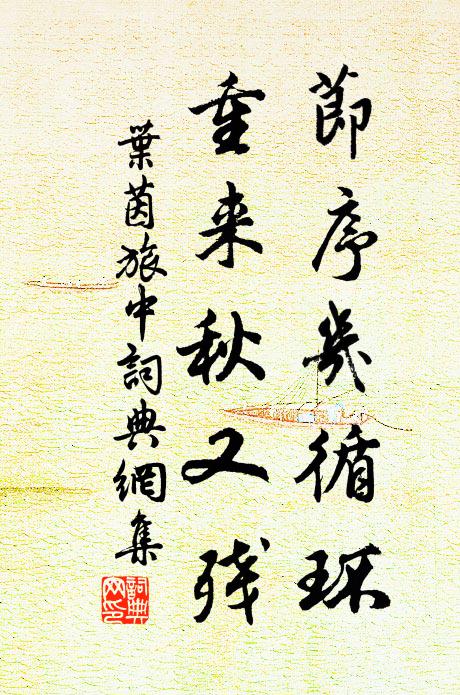 節序幾循環
重来秋又残
葉茵旅中詞典網集
詞典網印